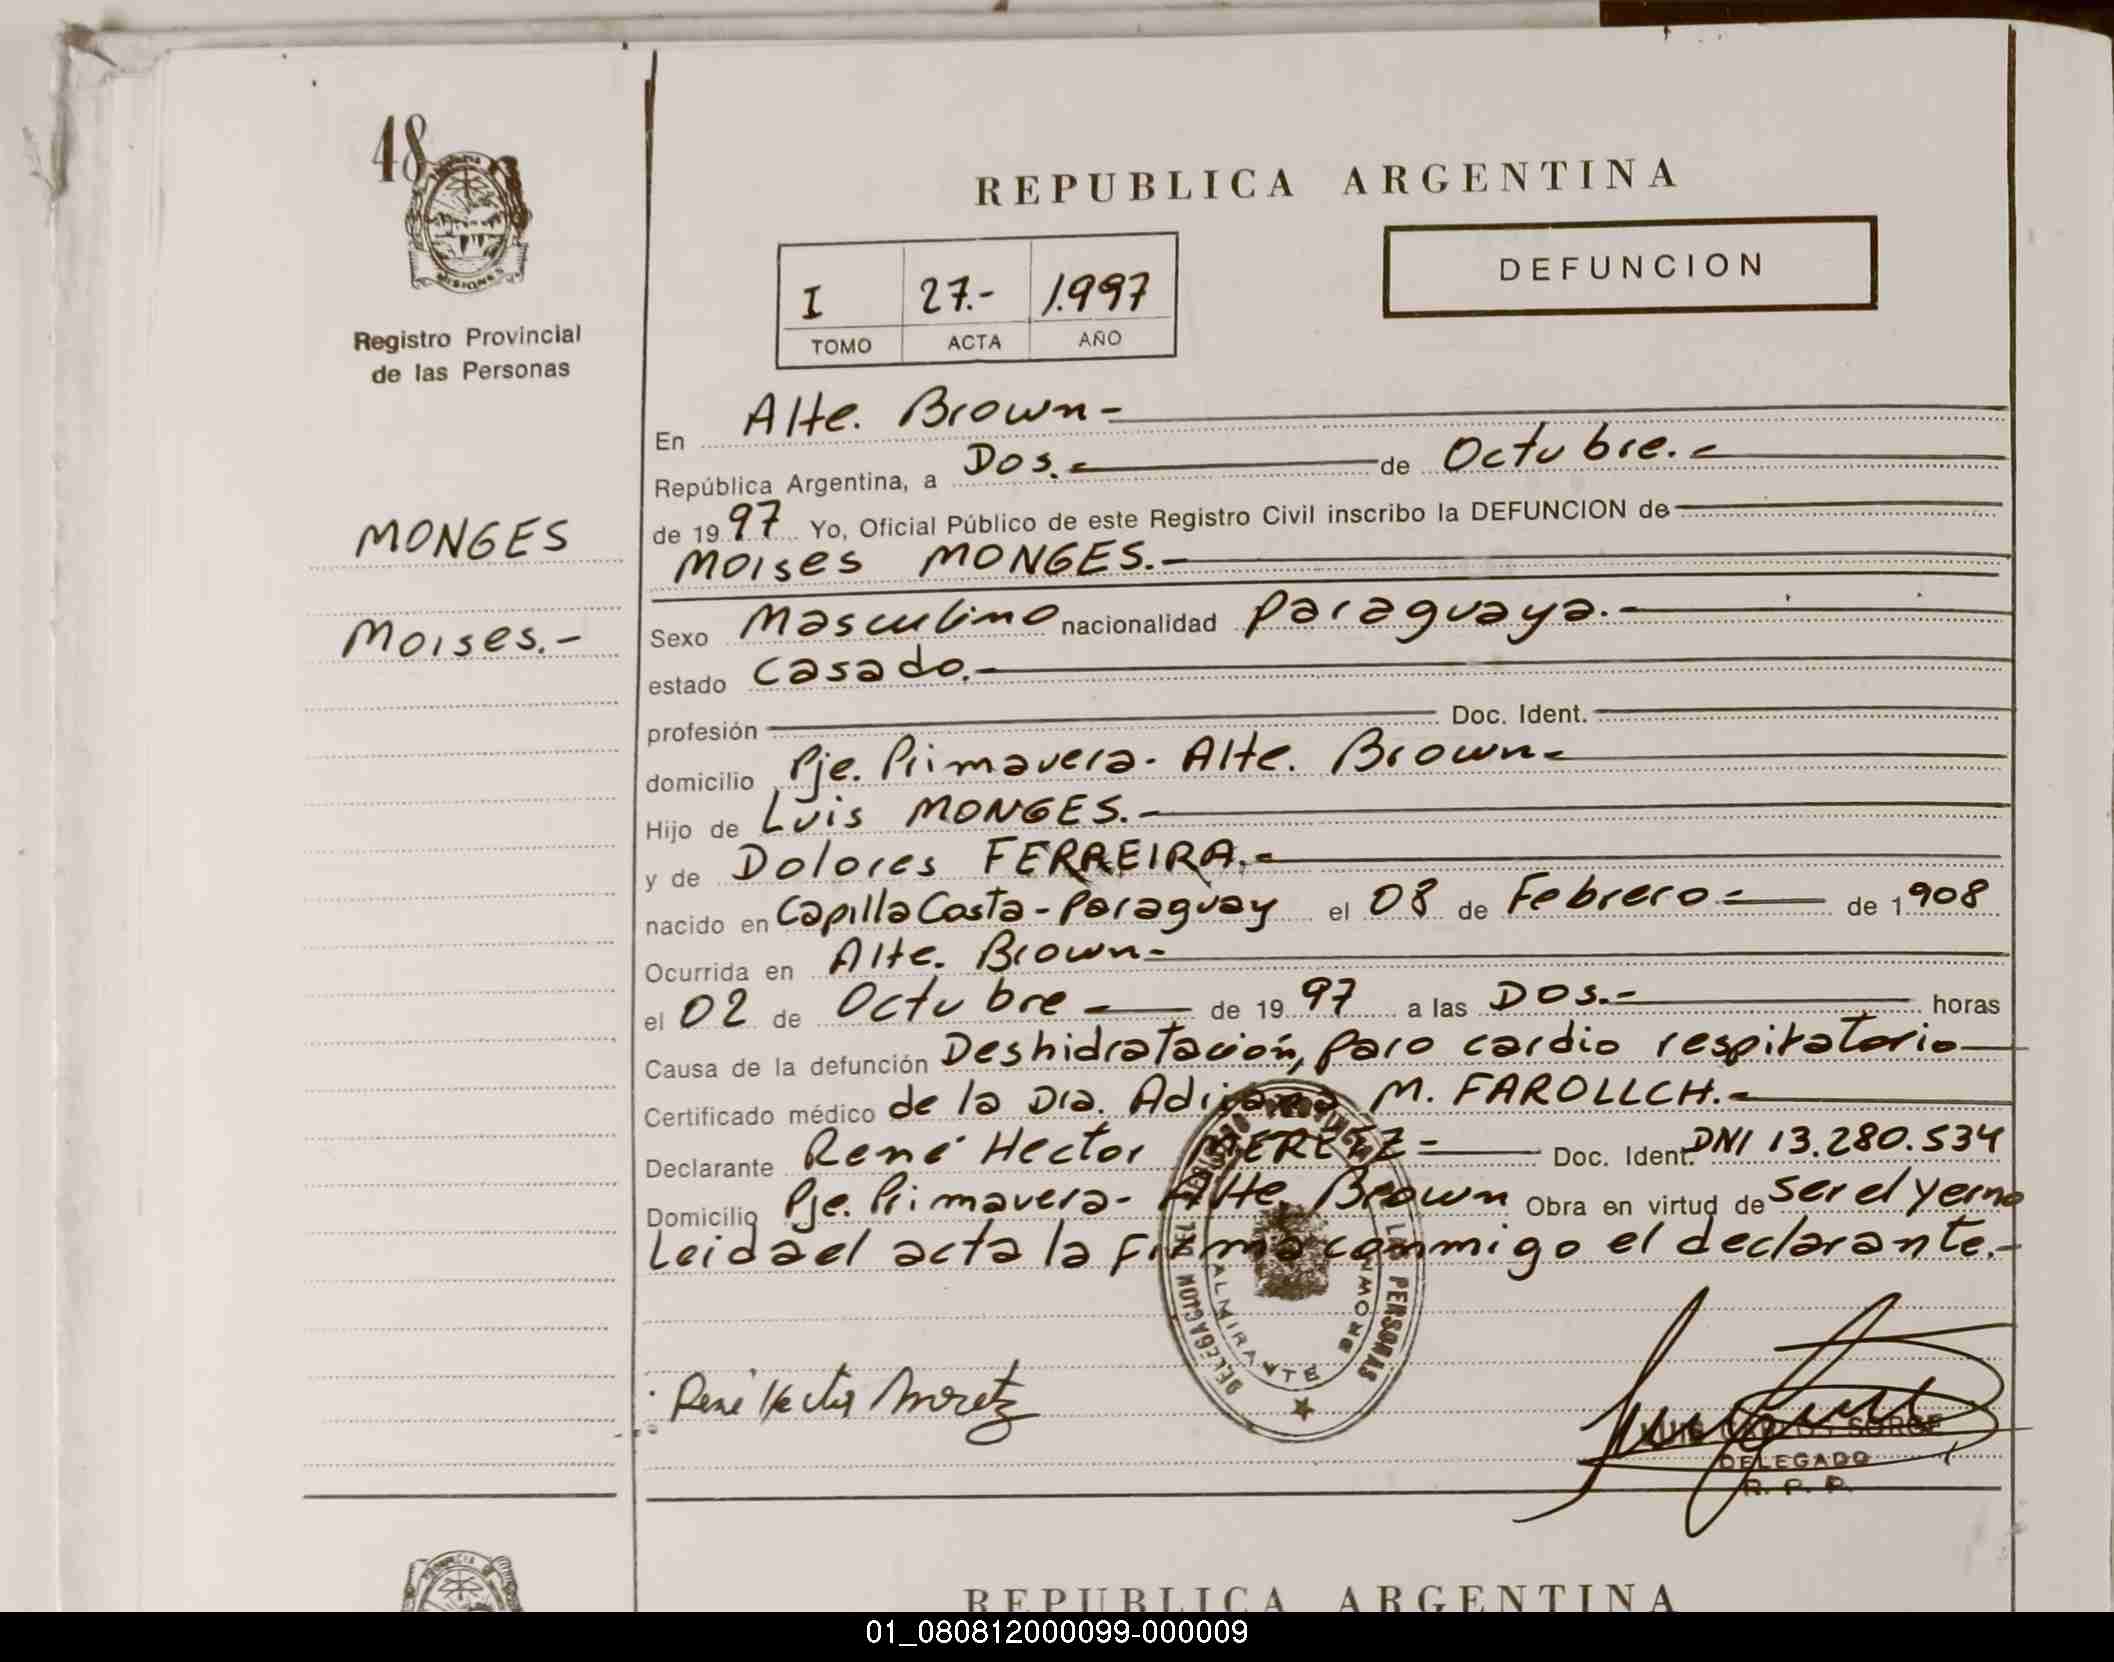 48
MISIONES
Registro Provincial
de las Personas
MONGES
Moises.-
REPUBLICA ARGENTINA
DEFUNCION
I 27.- 1.997
TOMO ACTA AÑO
En Alte. Brown-
República Argentina, a Dos.- de Octubre.-
de 1997 Yo, Oficial Público de este Registro Civil inscribo la DEFUNCION de
Moises MONGES.-
Sexo Masculino nacionalidad Paraguaya.-
estado Casado.-
profesión Doc. Ident.
domicilio Pje. Primavera- Alte. Brown-
Hijo de Luis MONGES.-
y de Dolores FERREIRA.-
nacido en Capilla Costa-Paraguay el 08 de Febrero- de 1908
Ocurrida en Alte. Brown-
el 02 de Octubre- de 1997 a las Dos.- horas
Causa de la defunción Deshidratación, paro cardio respitatorio
Certificado médico de la Dra. Adriana M. FAROLLCH.-
Declarante René Hector MERETZ- Doc. Ident. DNI 13.280.534
Domicilio Pje. Primavera- Alte. Brown Obra en virtud de ser el yerno
Leida el acta la firma conmigo el declarante.-
DELEGACION DEL REGISTRO PROVINCIAL DE LAS PERSONAS
ALMIRANTE BROWN
René Hector
LUIS CARLOS SORGE
DELEGADO
R. P. P.
REPUBLICA ARGENTINA
01_080812000099-000009